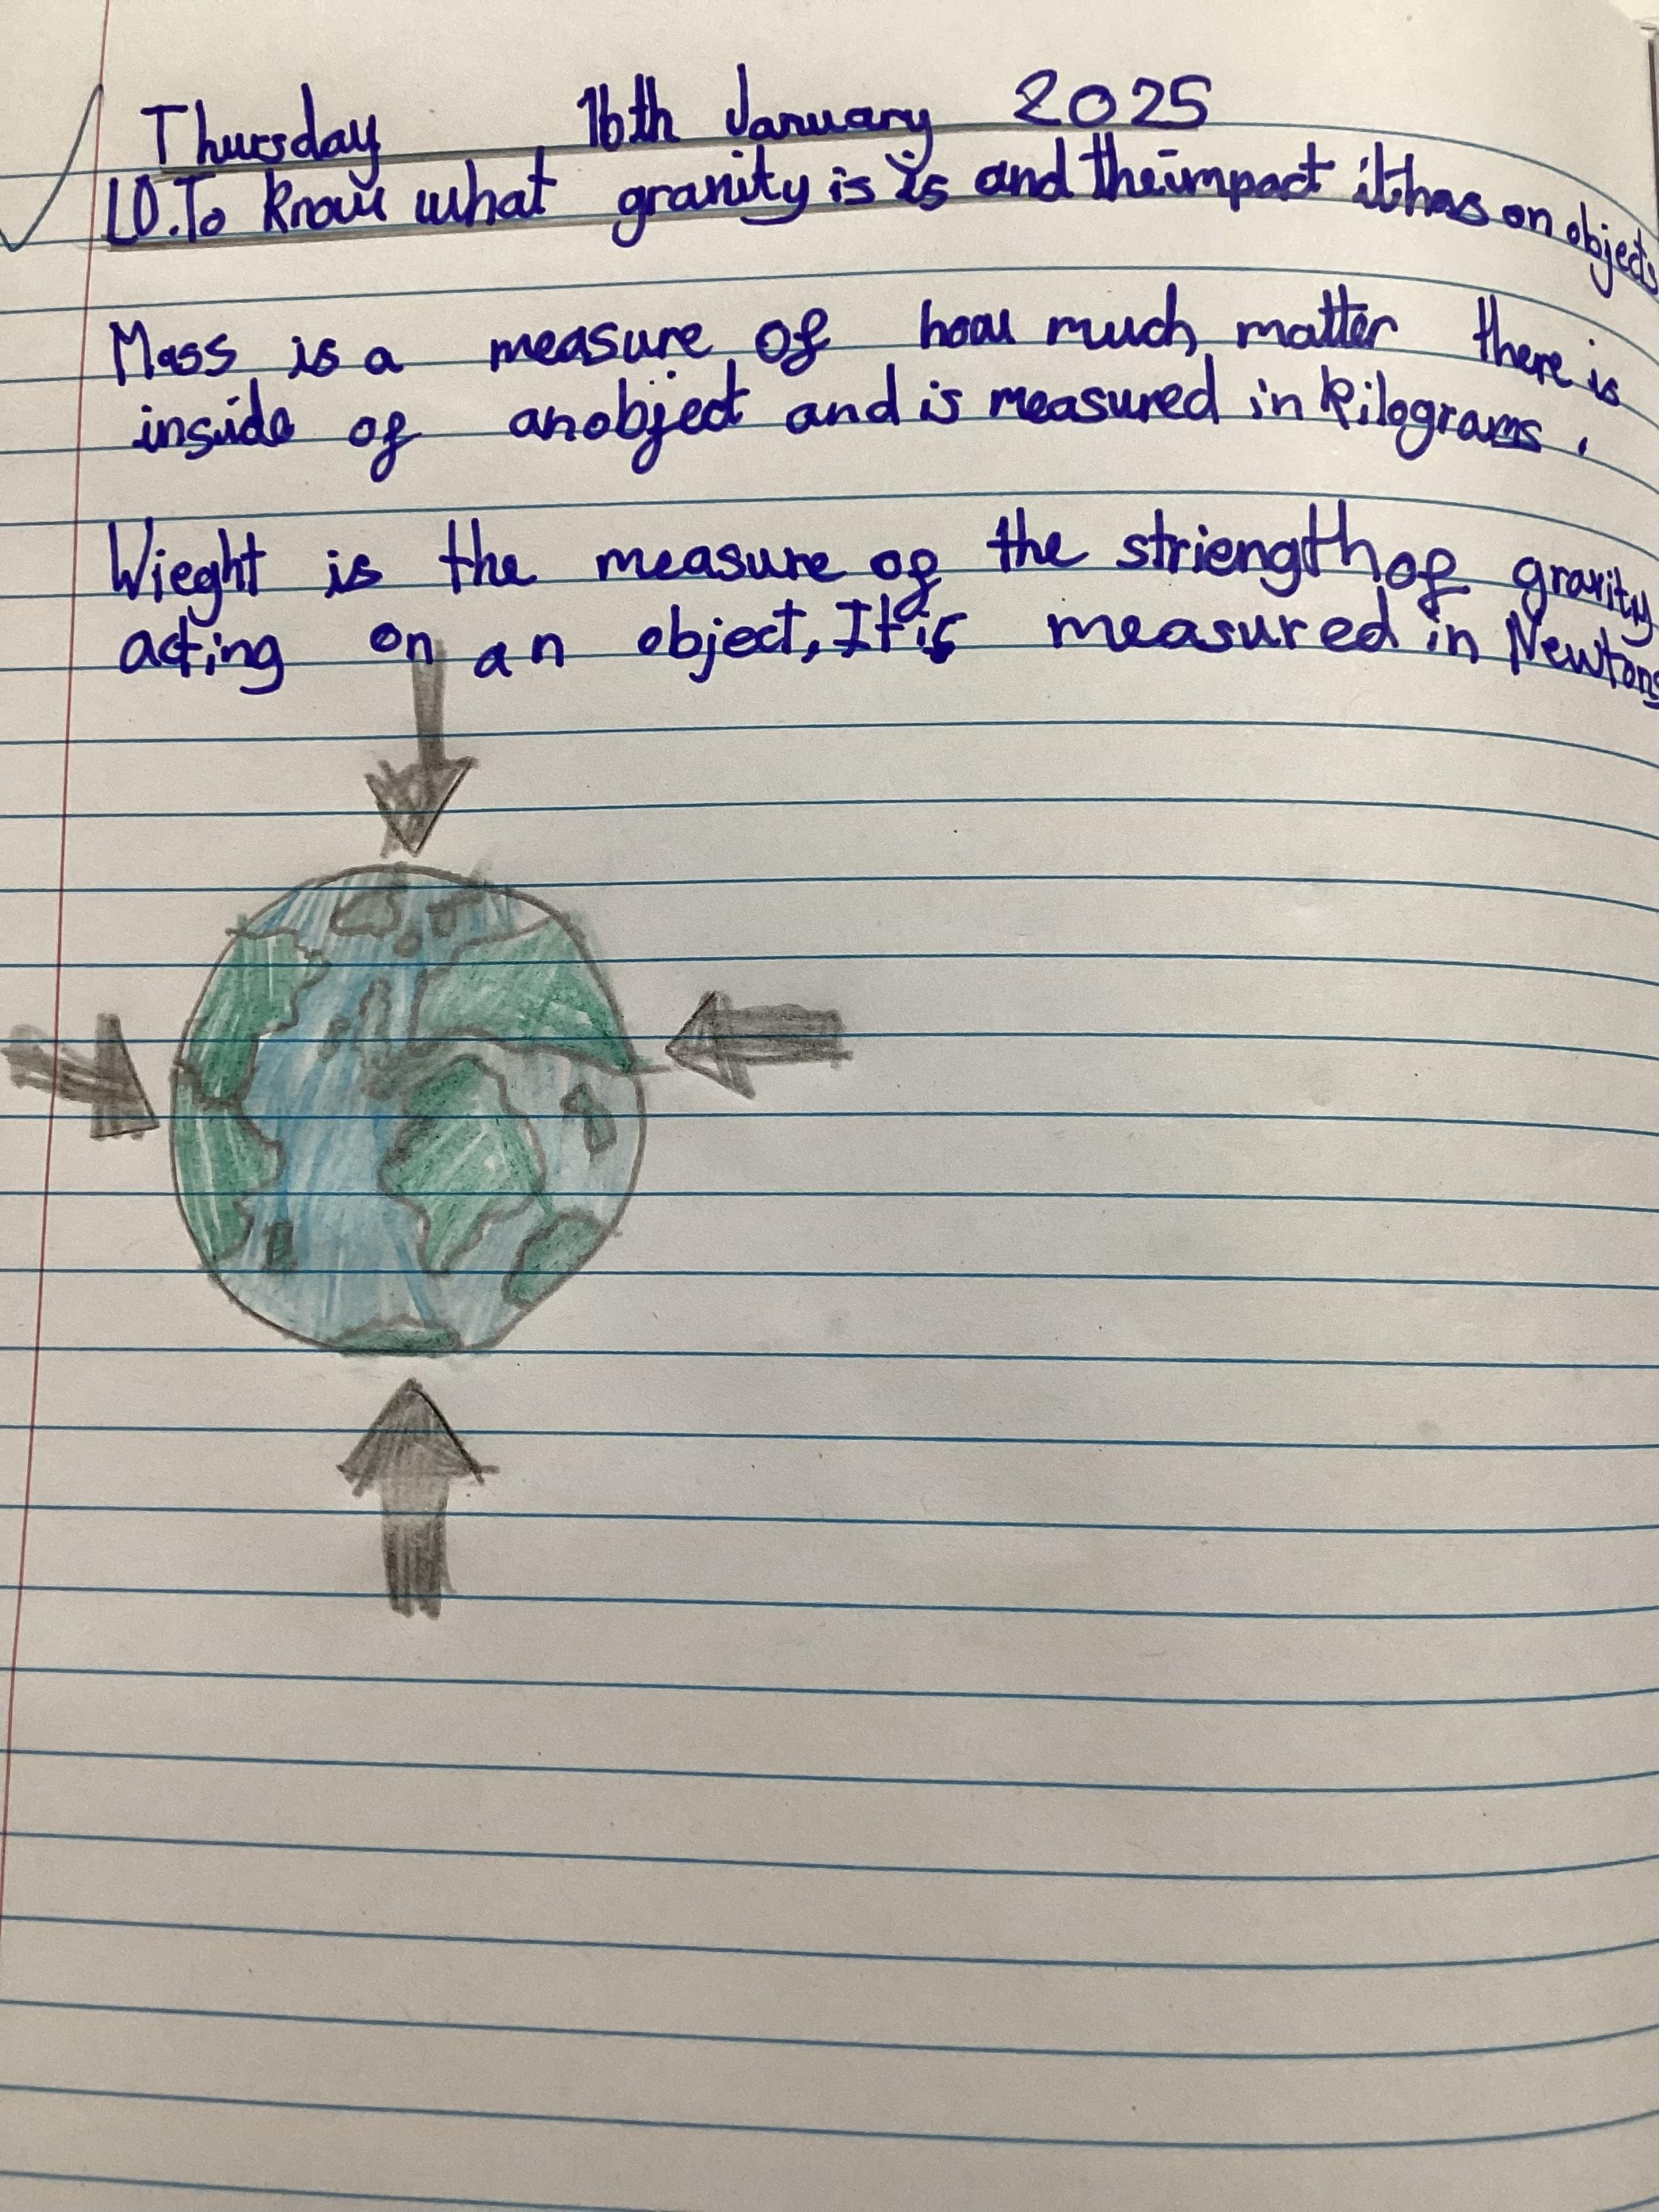 Thursday 16th January 2025
LO.To know what gravity is is and the impact it has on objects
Mass is a measure of how much matter there is
inside of an object and is measured in kilograms.
Wieght is the measure of the striength of gravity
acting on an object, It is measured in Newtons